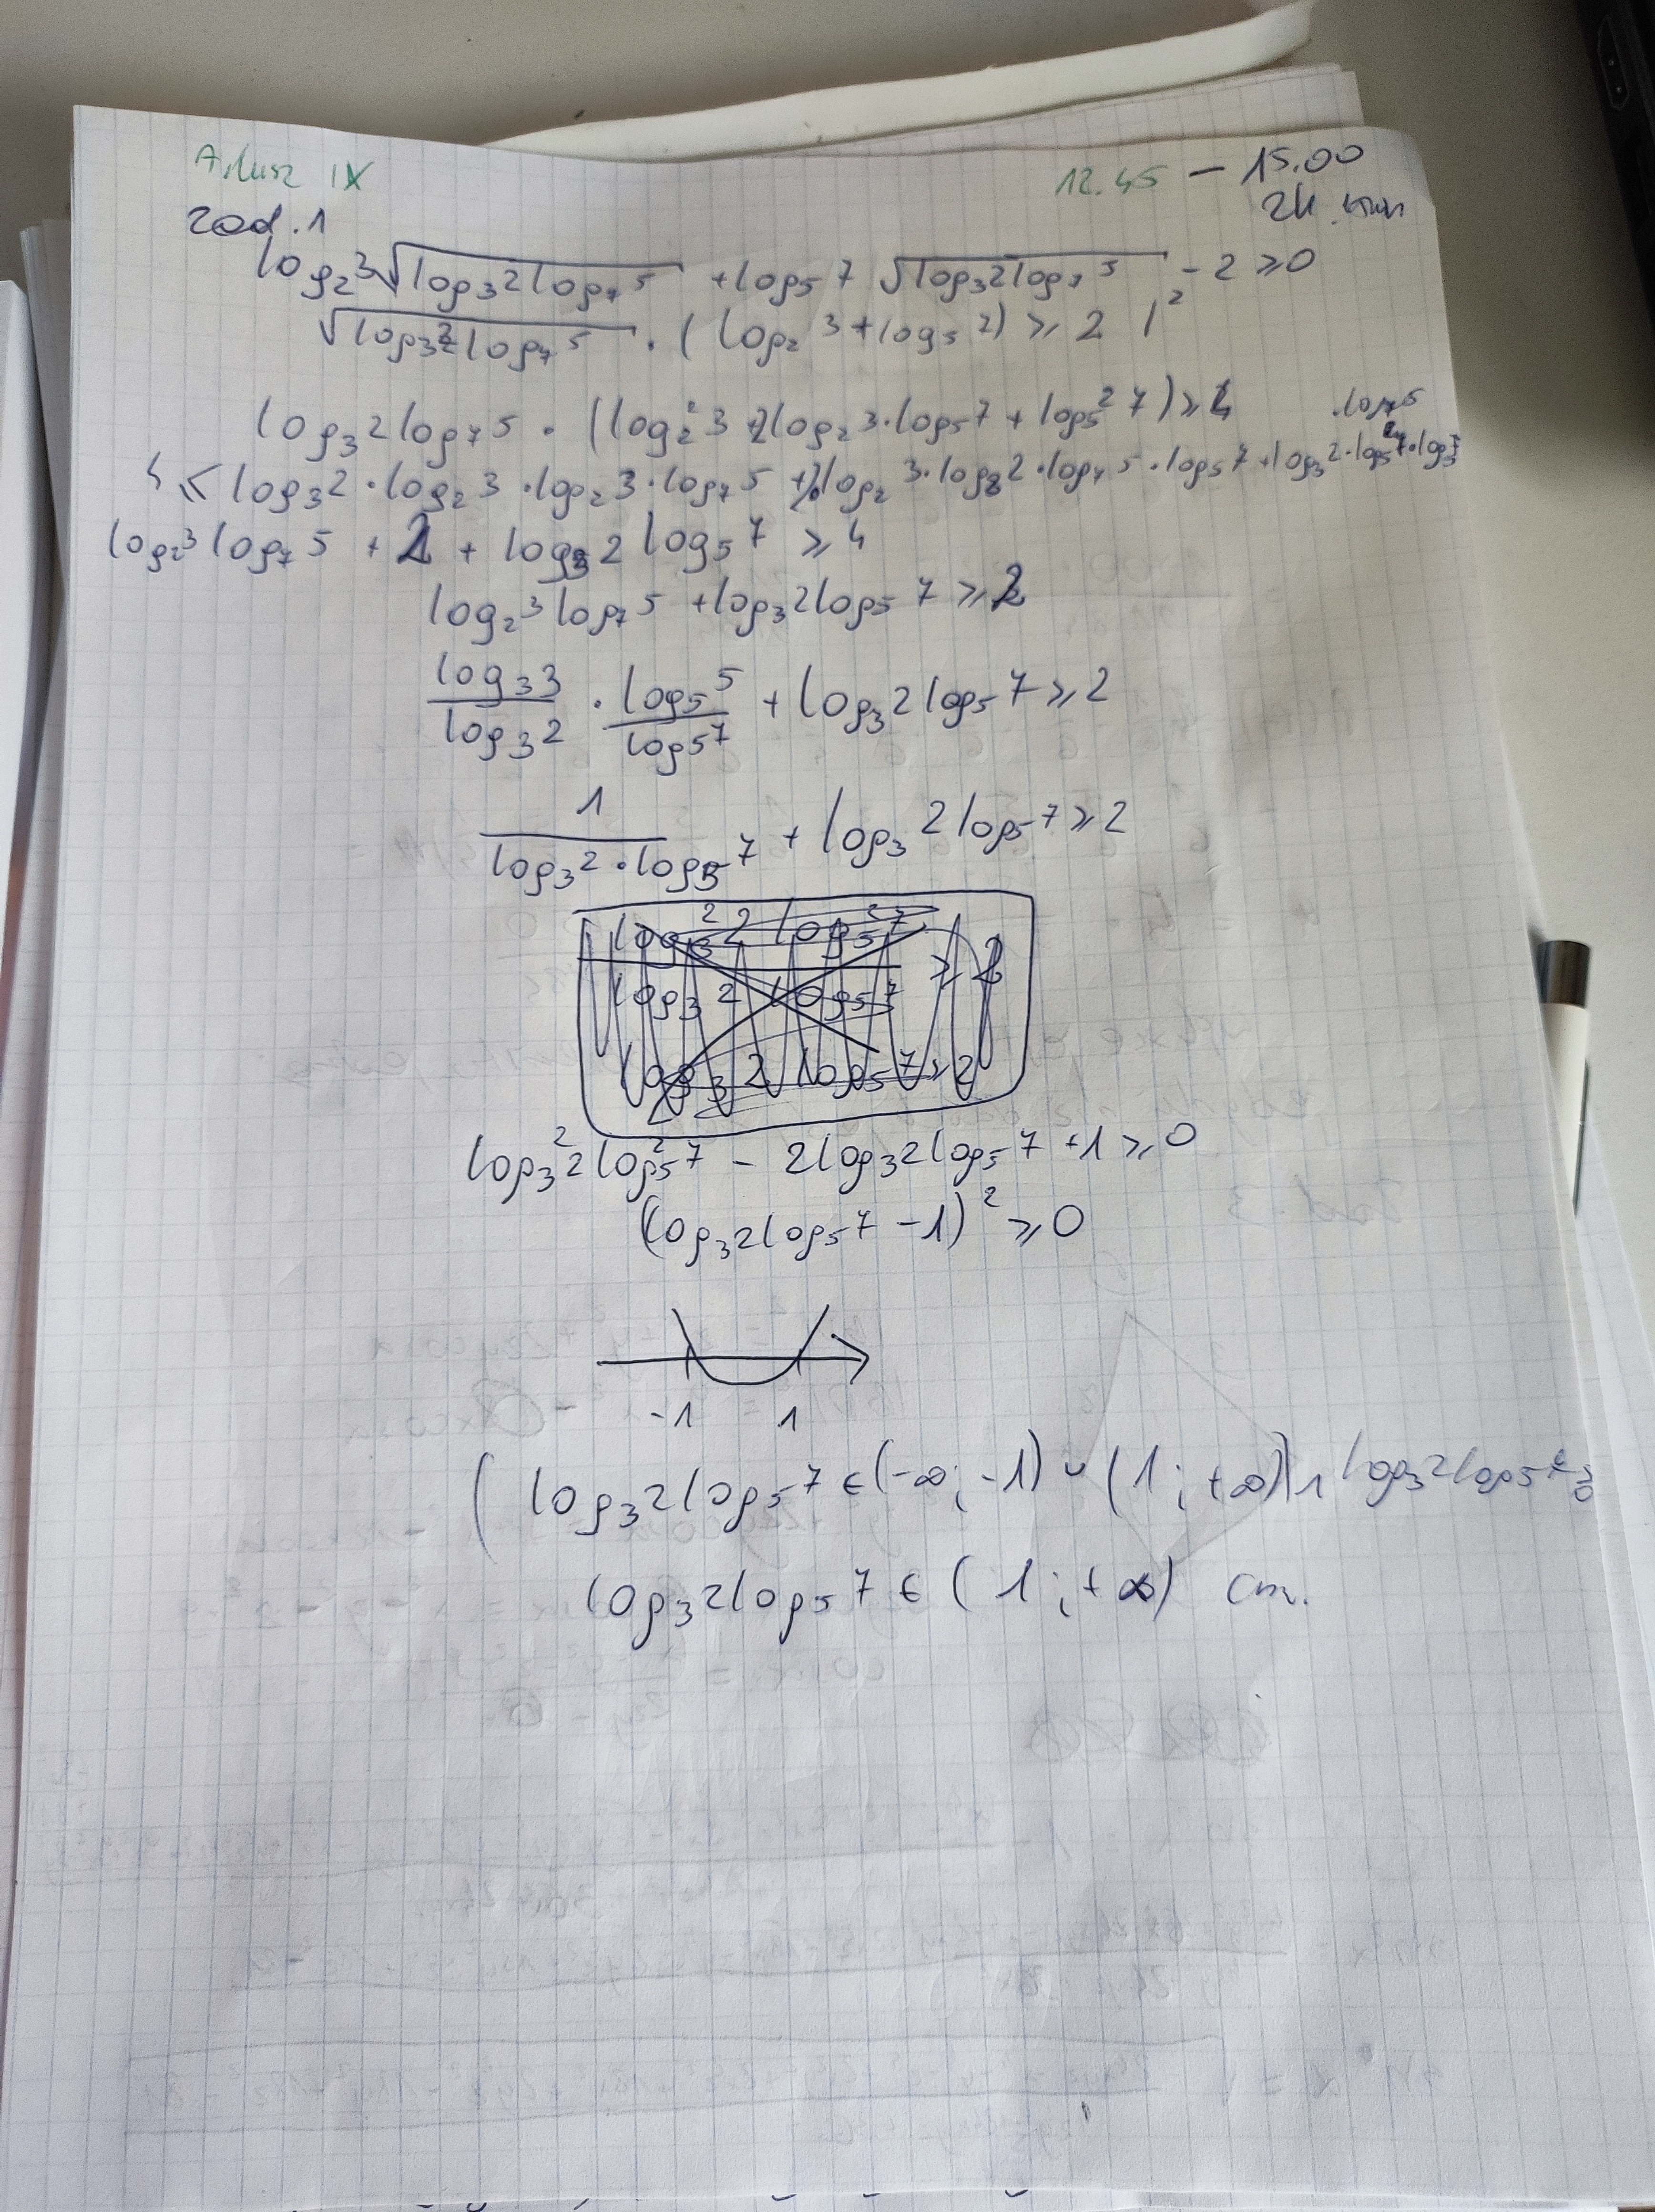 Arkusz IX 12.45 – 15.00
zad. 1 2h
log₂3√(log₃2log₇5) + log₅7 √(log₃2log₇5) - 2 ⩾ 0
√(log₃2log₇5) · (log₂3 + log₅7) ⩾ 2 |²
log₃2log₇5 · (log₂²3 + 2log₂3·log₅7 + log₅²7) ⩾ 4
·log₇5
4 ⩽ log₃2·log₂3·log₂3·log₇5 + 2log₂3·log₃2·log₇5·log₅7 + log₃2·log₅7·log₅7
log₂3log₇5 + 2 + log₃2log₅7 ⩾ 4
log₂3log₇5 + log₃2log₅7 ⩾ 2
log₃3/log₃2 · log₅5/log₅7 + log₃2log₅7 ⩾ 2
1/(log₃2·log₅7) + log₃2log₅7 ⩾ 2
log₃²2log₅²7 - 2log₃2log₅7 + 1 ⩾ 0
(log₃2log₅7 - 1)² ⩾ 0
-1 1
(log₃2log₅7 ∈ (-∞; -1) ∪ (1; +∞)) ∧ log₃2log₅7
log₃2log₅7 ∈ (1; +∞) cm.